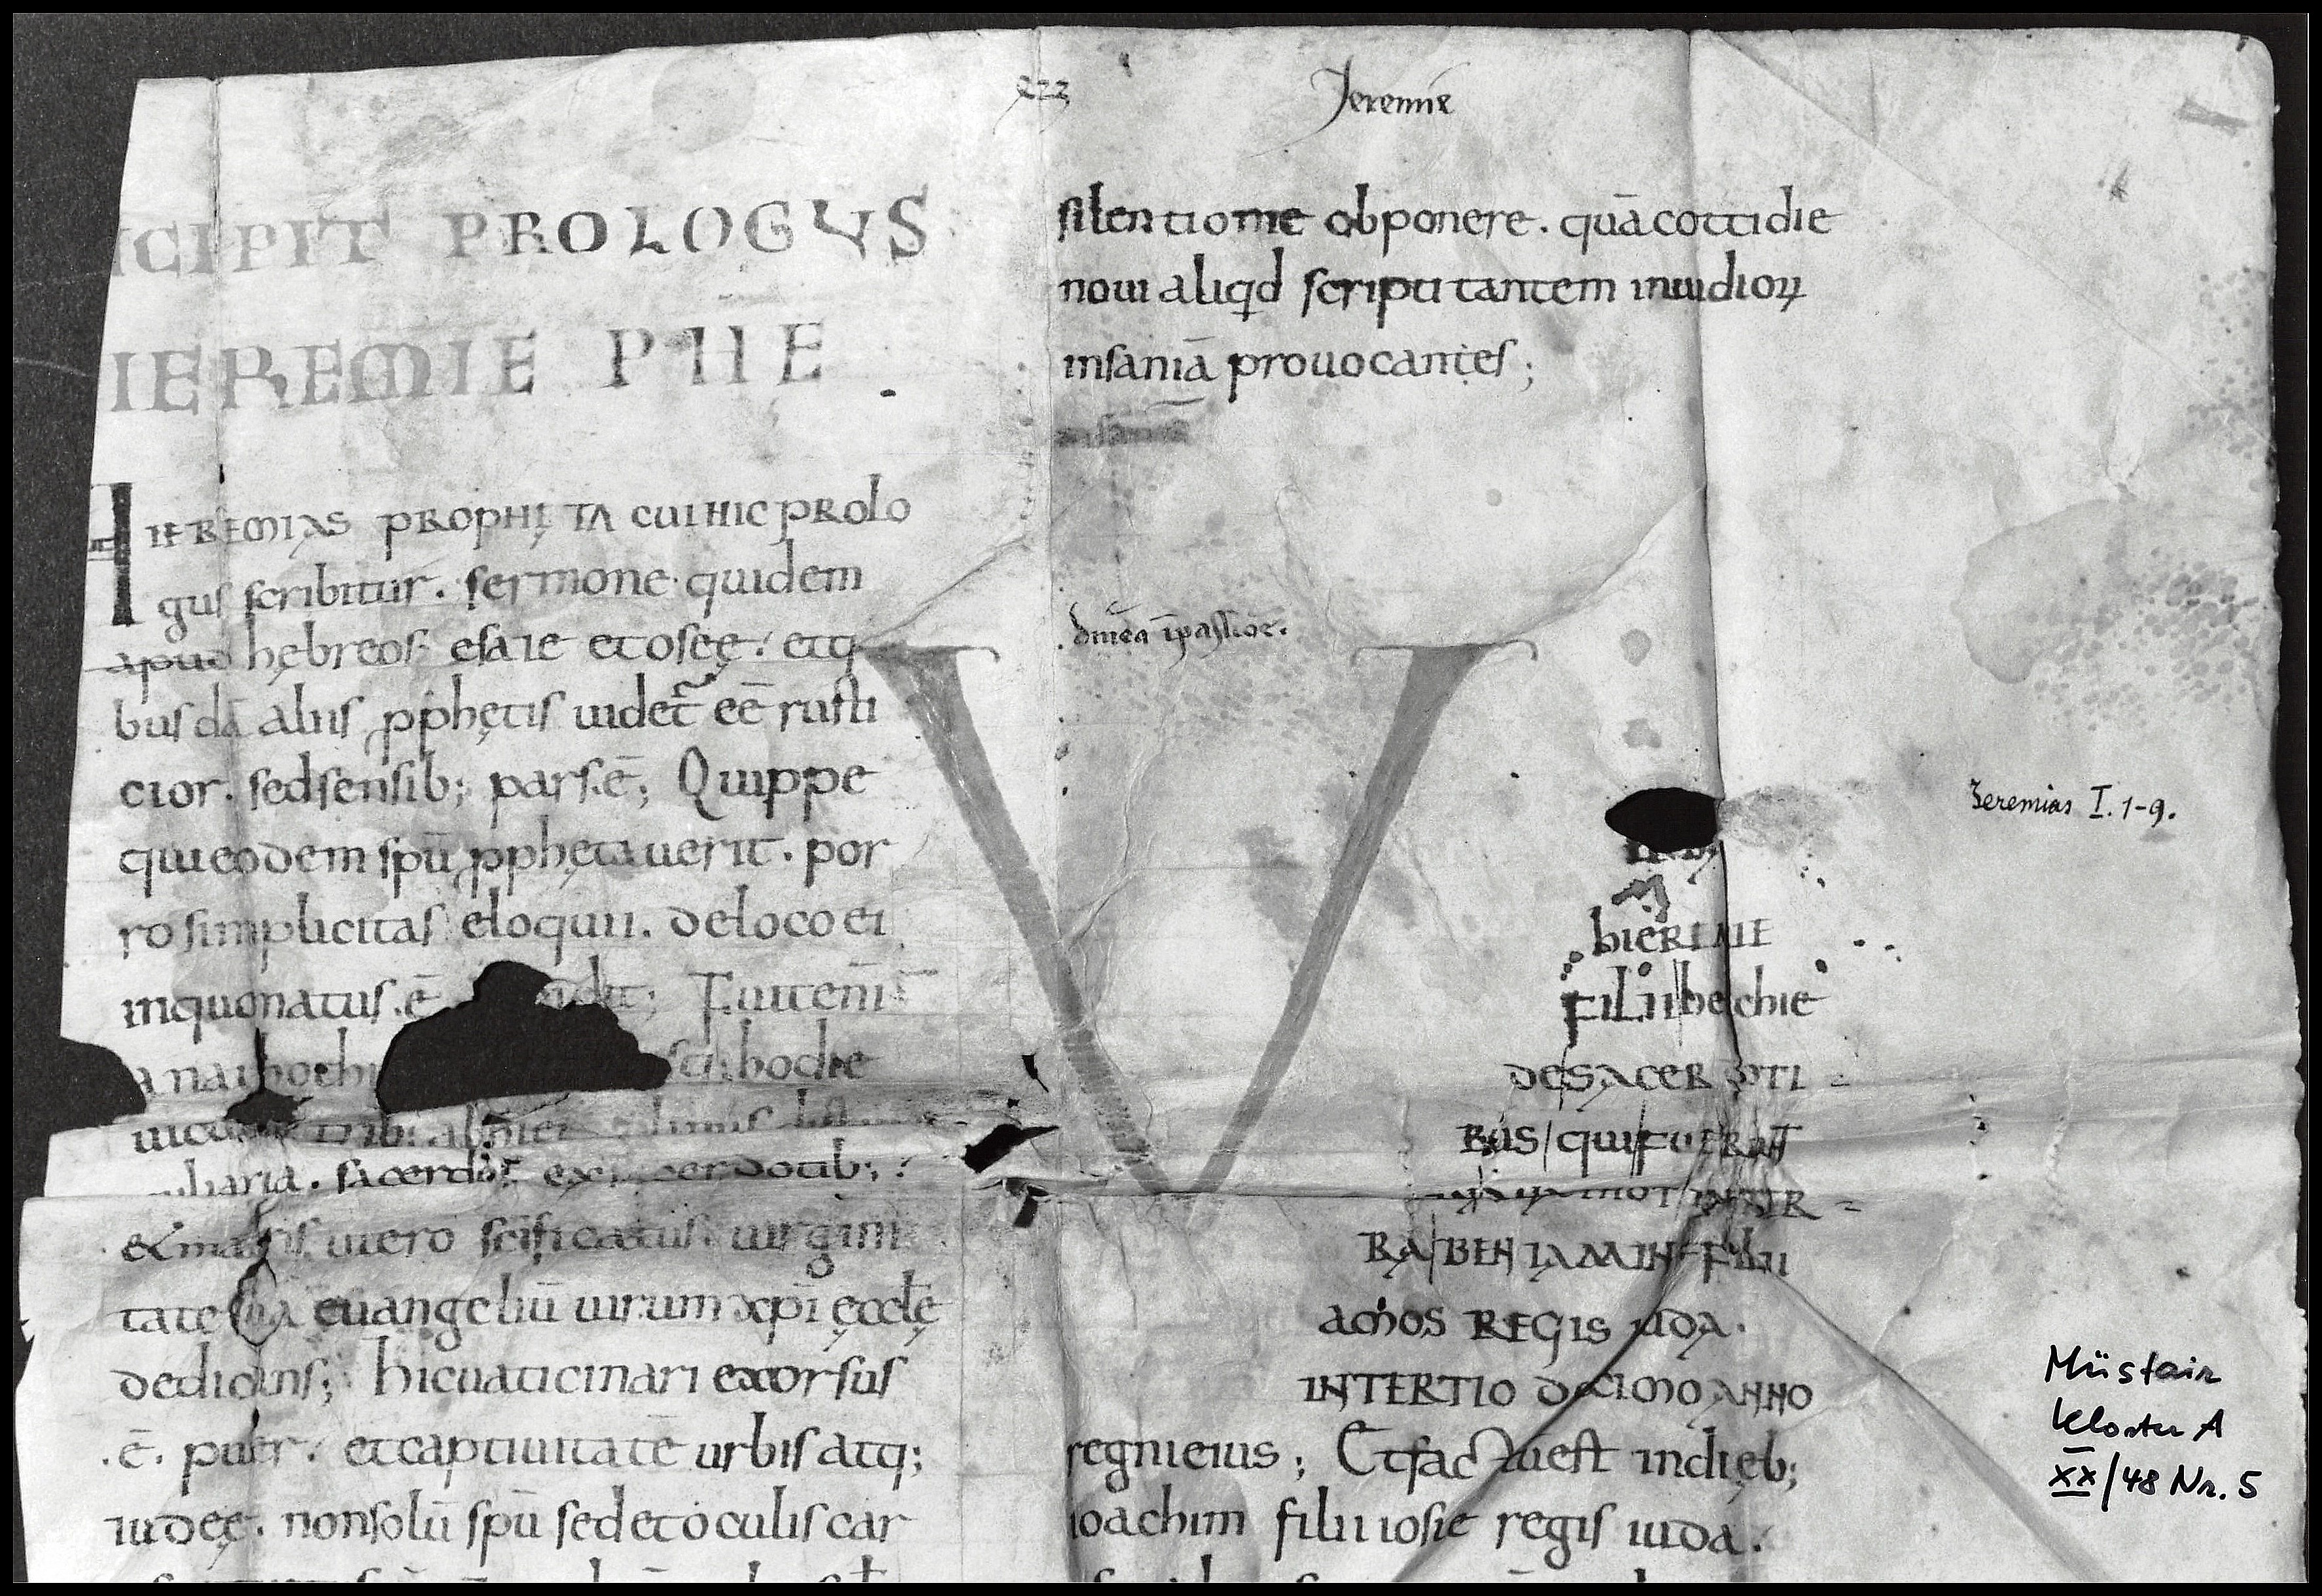 Jeremie
NCIPIT PROLOGUS
IEREMIE PHE
IEREMIAS PROPHETA CUI HIC PROLO
gus scribitur. sermone quidem
apud hębreos esaie et oseę. et q
busdā aliis ꝓphętis uidet̄ eē rusti
cior. sed sensib; par .ē; Quippe
qui eodem spū ꝓphętauerit. por
ro simplicitas eloquii. de loco ei
in quo natus .ē
hodie
sacerdos ex sacerdotib;
& matris utero sc̄ificatus. uirgini
tate suā euangeliū uirum xp̄i ęccłę
dedicans; hic uaticinari exorsus
.ē. puer. et captiuitatē urbis atq;
iudeę. non solū spū sed et oculis car
silentio me obponere. quā cottidie
noui aliqd scriptitantem inuidioꝝ
insaniā prouocantes;
dmēa īpassioē.
V
hieremie
FILII helchie
DE SACERDOTI
BUS QUI FUERUNT
IN TER
RA BENIAMIN FILII
AMOS REGIS IUDA.
IN TERTIO DECIMO ANNO
regni eius; Et factū est in dieb;
ioachim filii iosie regis iuda.
Jeremias I. 1-9.
Müstair
Kloster A
XX/48 Nr. 5